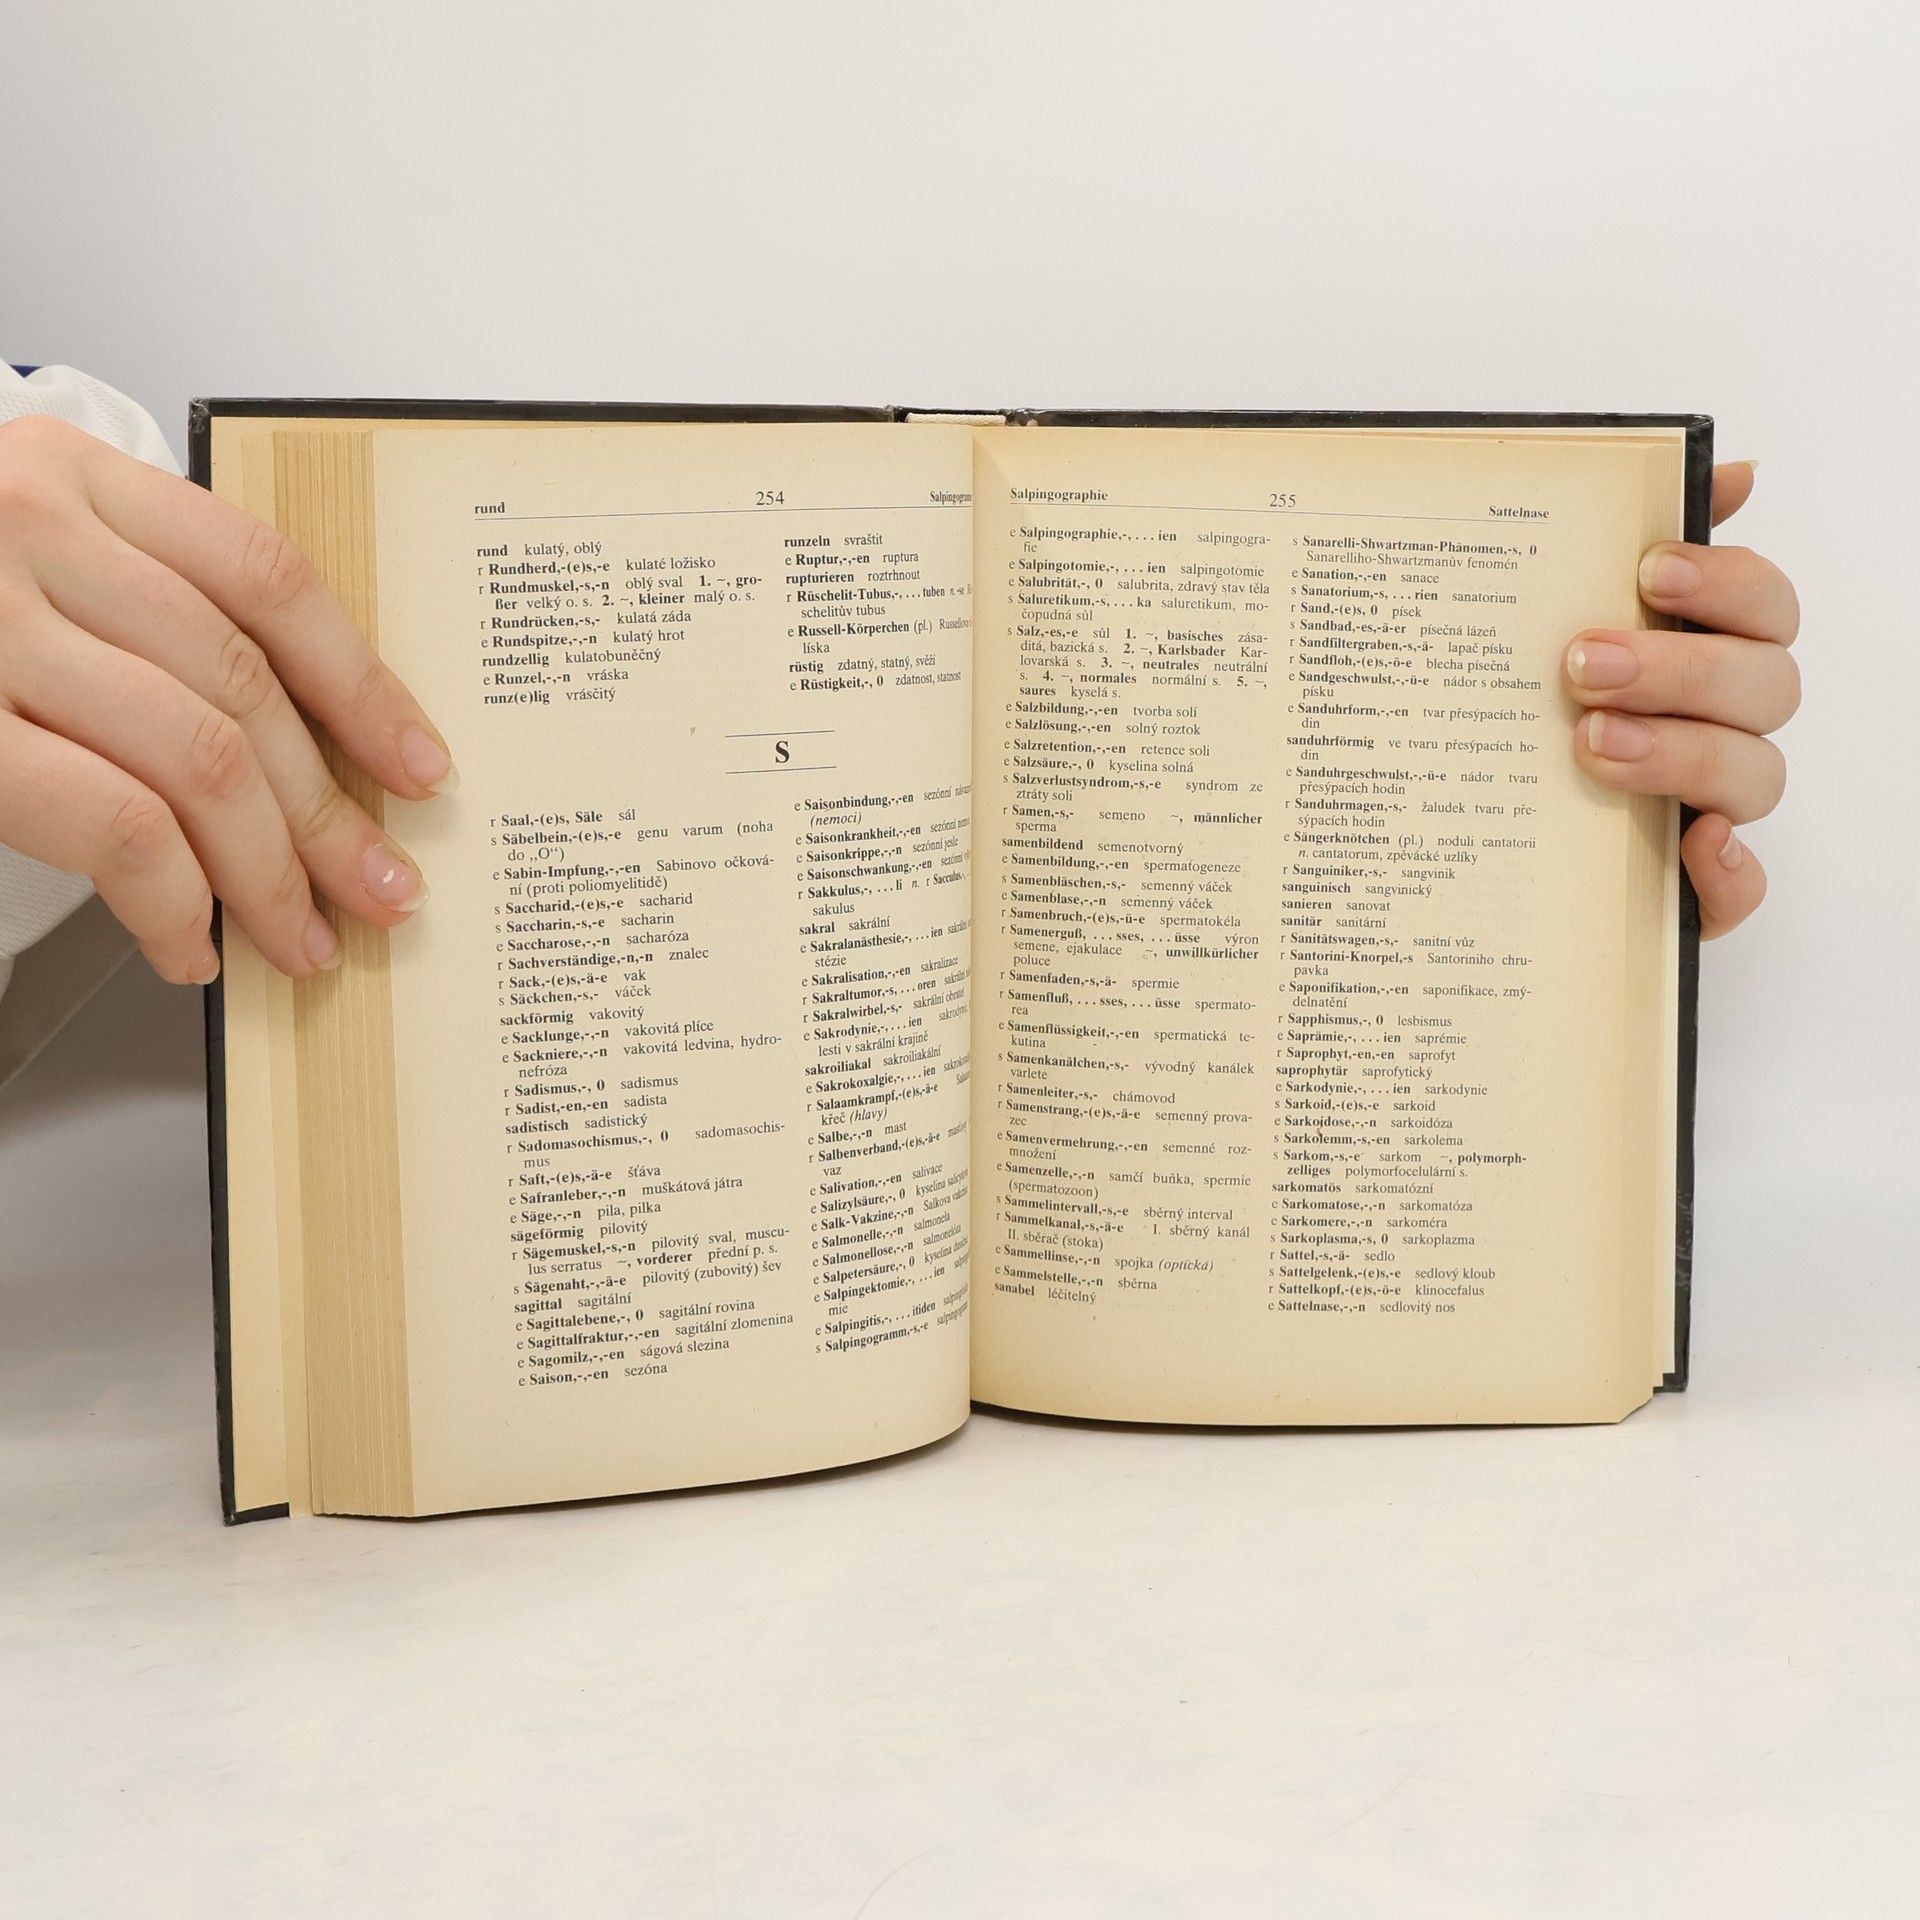 rund 254
rund kulatý, oblý
r Rundherd,-(e)s,-e kulaté ložisko
r Rundmuskel,-s,-n oblý sval 1. ~, gro-
ßer velký o. s. 2. ~, kleiner malý o. s.
r Rundrücken,-s,- kulatá záda
e Rundspitze,-,-n kulatý hrot
rundzellig kulatobuněčný
e Runzel,-,-n vráska
runz(e)lig vrásčitý
runzeln svraštit
e Ruptur,-,-en ruptura
rupturieren roztrhnout
r Rüschelit-Tubus,-,...tuben
schelitův tubus
e Russell-Körperchen (pl.)
líska
rüstig zdatný, statný, svěží
e Rüstigkeit,-, 0 zdatnost, statnost
S
r Saal,-(e)s, Säle sál
s Säbelbein,-(e)s,-e genu varum (noha
do „O“)
e Sabin-Impfung,-,-en Sabinovo očková-
ní (proti poliomyelitidě)
s Saccharid,-(e)s,-e sacharid
s Saccharin,-s,-e sacharin
e Saccharose,-,-n sacharóza
r Sachverständige,-n,-n znalec
r Sack,-(e)s,-ä-e vak
s Säckchen,-s,- váček
sackförmig vakovitý
e Sacklunge,-,-n vakovitá plíce
e Sackniere,-,-n vakovitá ledvina, hydro-
nefróza
r Sadismus,-, 0 sadismus
r Sadist,-en,-en sadista
sadistisch sadistický
r Sadomasochismus,-, 0 sadomasochis-
mus
r Saft,-(e)s,-ä-e šťáva
e Safranleber,-,-n muškátová játra
e Säge,-,-n pila, pilka
sägeförmig pilovitý
r Sägemuskel,-s,-n pilovitý sval, muscu-
lus serratus ~, vorderer přední p. s.
s Sägenaht,-,-ä-e pilovitý (zubovitý) šev
sagittal sagitální
e Sagittalebene,-, 0 sagitální rovina
e Sagittalfraktur,-,-en sagitální zlomenina
e Sagomilz,-,-en ságová slezina
e Saison,-,-en sezóna
e Saisonbindung,-,-en sezónní
(nemoci)
e Saisonkrankheit,-,-en sezónní
e Saisonkrippe,-,-n sezónní jesle
e Saisonschwankung,-,-en sezónní
r Sakkulus,-, ...li n. r Sacculus,-,
sakulus
sakral sakrální
e Sakralanästhesie,-, ...ien
stézie
e Sakralisation,-,-en sakralizace
r Sakraltumor,-s, ...oren sakrální
r Sakralwirbel,-s,- sakrální obratel
e Sakrodynie,-,...ien
lesti v sakrální krajině
sakroiliakal sakroiliakální
e Sakrokoxalgie,-,...ien
r Salaamkrampf,-(e)s,-ä-e
křeč (hlavy)
e Salbe,-,-n mast
r Salbenverband,-(e)s,-ä-e
vaz
e Salivation,-,-en salivace
e Salizylsäure,-, 0 kyselina
e Salk-Vakzine,-,-n Salkova vakcína
e Salmonelle,-,-n salmonela
e Salmonellose,-,-n salmonelóza
e Salpetersäure,-, 0 kyselina dusičná
e Salpingektomie,-, ...ien
mie
e Salpingitis,-, ...itiden
s Salpingogramm,-s,-e
Salpingographie 255 Sattelnase
e Salpingographie,-,...ien salpingogra-
fie
e Salpingotomie,-, ...ien salpingotomie
e Salubrität,-, 0 salubrita, zdravý stav těla
s Saluretikum,-s, ...ka saluretikum, mo-
čopudná sůl
s Salz,-es,-e sůl 1. ~, basisches zása-
ditá, bazická s. 2. ~, Karlsbader Kar-
lovarská s. 3. ~, neutrales neutrální
s. 4. ~, normales normální s. 5. ~,
saures kyselá s.
e Salzbildung,-,-en tvorba solí
e Salzlösung,-,-en solný roztok
e Salzretention,-,-en retence soli
e Salzsäure,-, 0 kyselina solná
s Salzverlustsyndrom,-s,-e syndrom ze
ztráty soli
r Samen,-s,- semeno ~, männlicher
sperma
samenbildend semenotvorný
e Samenbildung,-,-en spermatogeneze
s Samenbläschen,-s,- semenný váček
e Samenblase,-,-n semenný váček
r Samenbruch,-(e)s,-ü-e spermatokéla
r Samenerguß, ...sses, ...üsse výron
semene, ejakulace ~, unwillkürlicher
poluce
r Samenfaden,-s,-ä- spermie
r Samenfluß, ...sses, ...üsse spermato-
rea
e Samenflüssigkeit,-,-en spermatická te-
kutina
s Samenkanälchen,-s,- vývodný kanálek
varlete
r Samenleiter,-s,- chámovod
r Samenstrang,-(e)s,-ä-e semenný prova-
zec
e Samenvermehrung,-,-en semenné roz-
množení
e Samenzelle,-,-n samčí buňka, spermie
(spermatozoon)
s Sammelintervall,-s,-e sběrný interval
r Sammelkanal,-s,-ä-e I. sběrný kanál
II. sběrač (stoka)
e Sammellinse,-,-n spojka (optická)
e Sammelstelle,-,-n sběrna
sanabel léčitelný
s Sanarelli-Shwartzman-Phänomen,-s, 0
Sanarelliho-Shwartzmanův fenomén
e Sanation,-,-en sanace
s Sanatorium,-s, ...rien sanatorium
r Sand,-(e)s, 0 písek
s Sandbad,-es,-ä-er písečná lázeň
r Sandfiltergraben,-s,-ä- lapač písku
r Sandfloh,-(e)s,-ö-e blecha písečná
e Sandgeschwulst,-,-ü-e nádor s obsahem
písku
e Sanduhrform,-,-en tvar přesýpacích ho-
din
sanduhrförmig ve tvaru přesýpacích ho-
din
e Sanduhrgeschwulst,-,-ü-e nádor tvaru
přesýpacích hodin
r Sanduhrmagen,-s,- žaludek tvaru pře-
sýpacích hodin
e Sängerknötchen (pl.) noduli cantatorii
n. cantatorum, zpěvácké uzlíky
r Sanguiniker,-s,- sangvinik
sanguinisch sangvinický
sanieren sanovat
sanitär sanitární
r Sanitätswagen,-s,- sanitní vůz
r Santorini-Knorpel,-s Santoriniho chru-
pavka
e Saponifikation,-,-en saponifikace, zmý-
delnatění
r Sapphismus,-, 0 lesbismus
e Saprämie,-, ...ien saprémie
r Saprophyt,-en,-en saprofyt
saprophytär saprofytický
e Sarkodynie,-, ...ien sarkodynie
s Sarkoid,-(e)s,-e sarkoid
e Sarkoidose,-,-n sarkoidóza
s Sarkolemm,-s,-en sarkolema
s Sarkom,-s,-e sarkom ~, polymorph-
zelliges polymorfocelulární s.
sarkomatös sarkomatózní
e Sarkomatose,-,-n sarkomatóza
e Sarkomere,-,-n sarkoméra
s Sarkoplasma,-s, 0 sarkoplazma
r Sattel,-s,-ä- sedlo
s Sattelgelenk,-(e)s,-e sedlový kloub
r Sattelkopf,-(e)s,-ö-e klinocefalus
e Sattelnase,-,-n sedlovitý nos